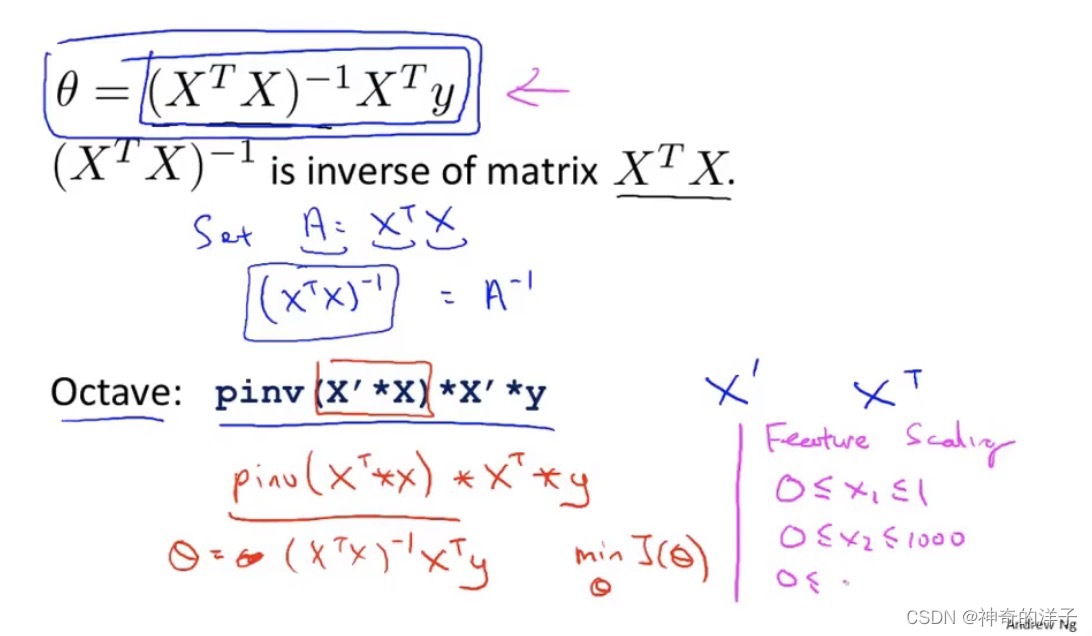 θ = (X^T X)^{-1} X^T y
(X^T X)^{-1} is inverse of matrix X^T X.
Set A = X^T X
(X^T X)^{-1} = A^{-1}
Octave: pinv(X'*X)*X'*y
X' X^T
pinv(X^T*X)*X^T*y
θ = (X^T X)^{-1} X^T y
min J(θ)
θ
Feature Scaling
0 ≤ x₁ ≤ 1
0 ≤ x₂ ≤ 1000
0 ≤
Andrew Ng
CSDN @神奇的洋子